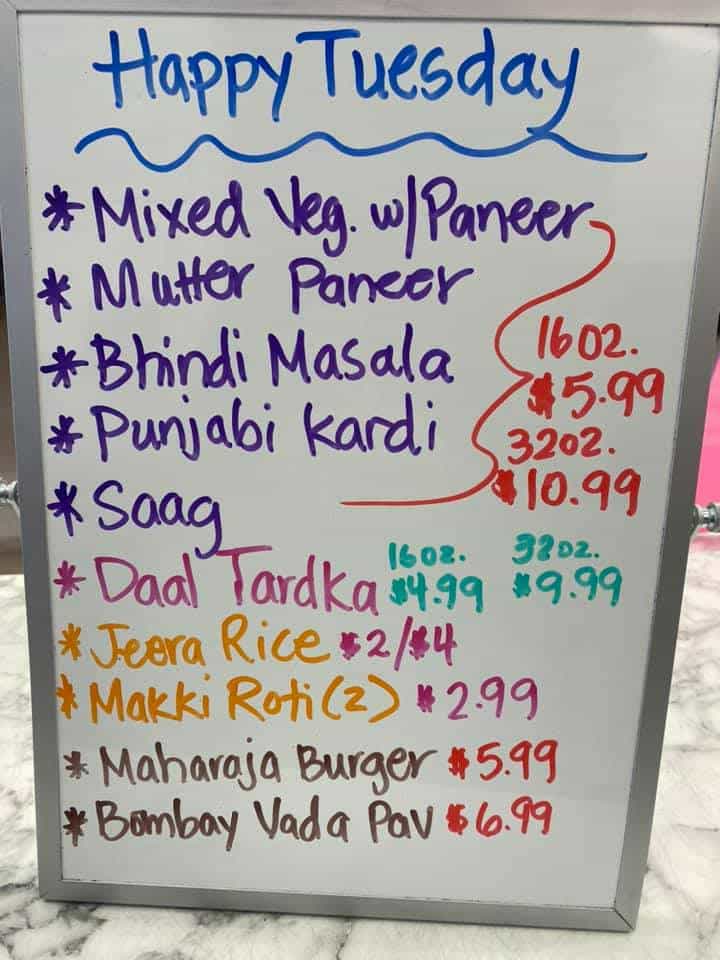 Happy Tuesday
* Mixed Veg. w/Paneer
* Mutter Paneer
* Bhindi Masala
16oz.
$5.99
* Punjabi Kardi
32oz.
$10.99
* Saag
* Daal Tardka 16oz. $4.99 32oz. $9.99
* Jeera Rice $2/$4
* Makki Roti (2) $2.99
* Maharaja Burger $5.99
* Bombay Vada Pav $6.99